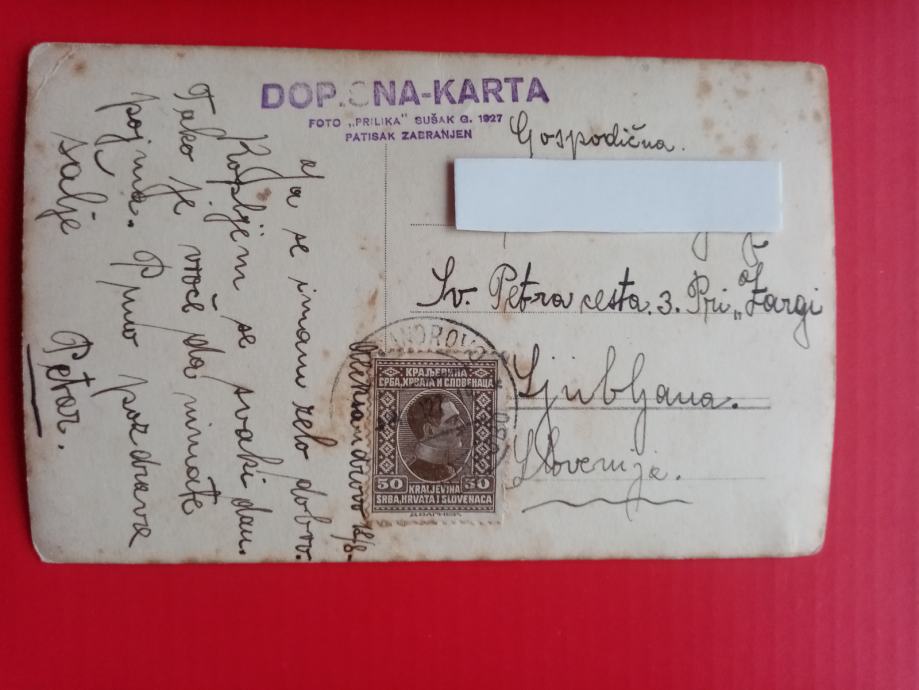 DOP.SNA-KARTA
FOTO „PRILIKA" SUŠAK G. 1927
PATISAK ZABRANJEN
Gospodična.
Sv. Petra cesta. 3. Pri „Žargi
Ljubljana.
Slovenija.
Aleksandrovo 12/8
Ja se imam zelo dobro.
Kopljem se svaki dan.
Tako je vroče da nimate
pojma. Puno pozdrava
šalje
Petar.
КРАЉЕВИНА
СРБА, ХРВАТА И СЛОВЕНАЦА
50 KRALJEVINA 50
SRBA, HRVATA I SLOVENACA